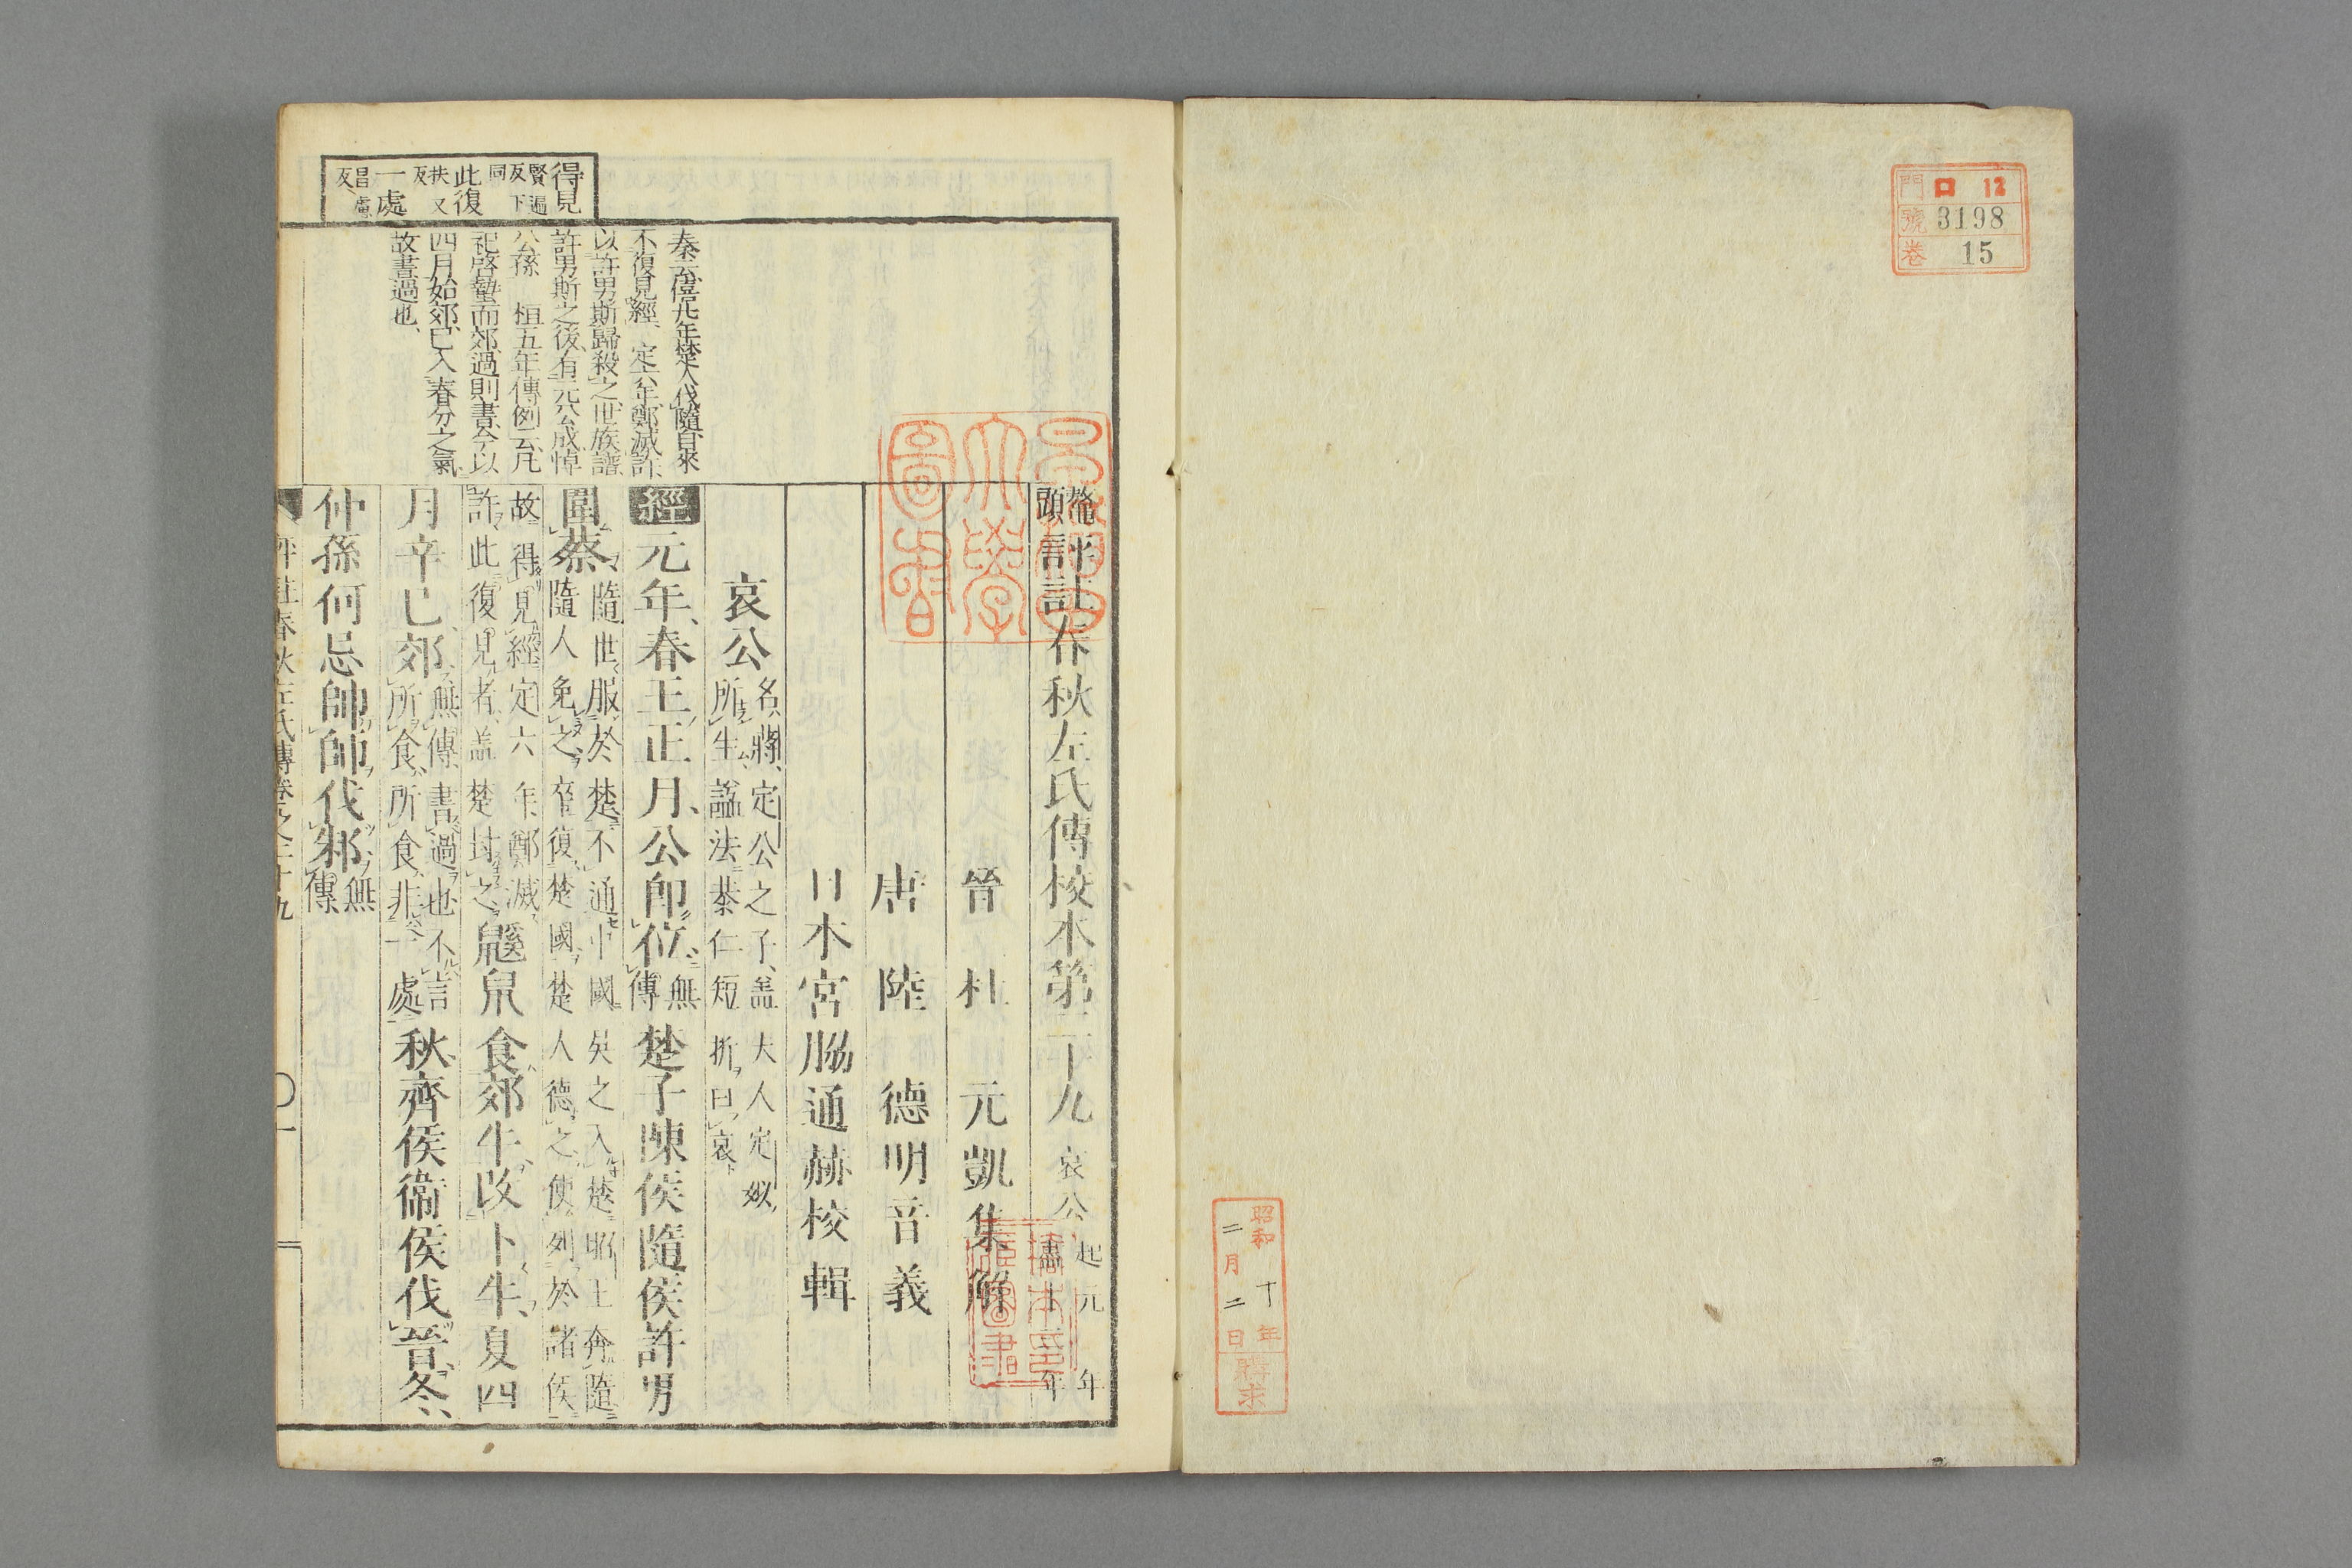 門 ロ 12
號 3198
卷 15
昭和十年
二月二日
購求
得見
賢遍
反下
同
此復
扶又
反
一處
昌慮
反
秦云僖元年楚人伐隨自來
不復見經、定六年、鄭滅許、
以許男斯歸殺之、世族譜、
許男斯之後、有元公成、悼
公孫 桓五年傳例云、凡
祀啓蟄而郊、過則書、今以
四月始郊、已入春分之氣、
故書過也、
鼇頭評註春秋左氏傳校本第二十九 哀公 起元年 盡十三年
晉 杜 元凱集解
唐 陸 德明音義
日本宮脇通赫校輯
哀公 名、蔣、定公之子、盖大人定姒、
所生、諡法恭仁短折曰哀
經元年、春王正月、公即位、無傳 楚子陳侯隨侯許男
圍蔡、隨世服於楚、不通中國、吳之入楚、昭王奔隨、
隨人免之、卒復楚國、楚人德之、使列於諸侯、
故得見經、定六年、鄭滅
許、此復見者、盖楚封之、鼷鼠食郊牛、改卜牛、夏四
月辛巳郊、無傳、書過也、不言
所食、所食非一處、秋齊侯衞侯伐晉、冬、
仲孫何忌帥師伐邾、無傳
評註春秋左氏傳卷之二十九 〇一
大學
圖書
圖書